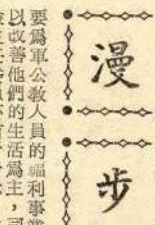 漫步
要為軍公教人員的福利事業
以改善他們的生活為主，司